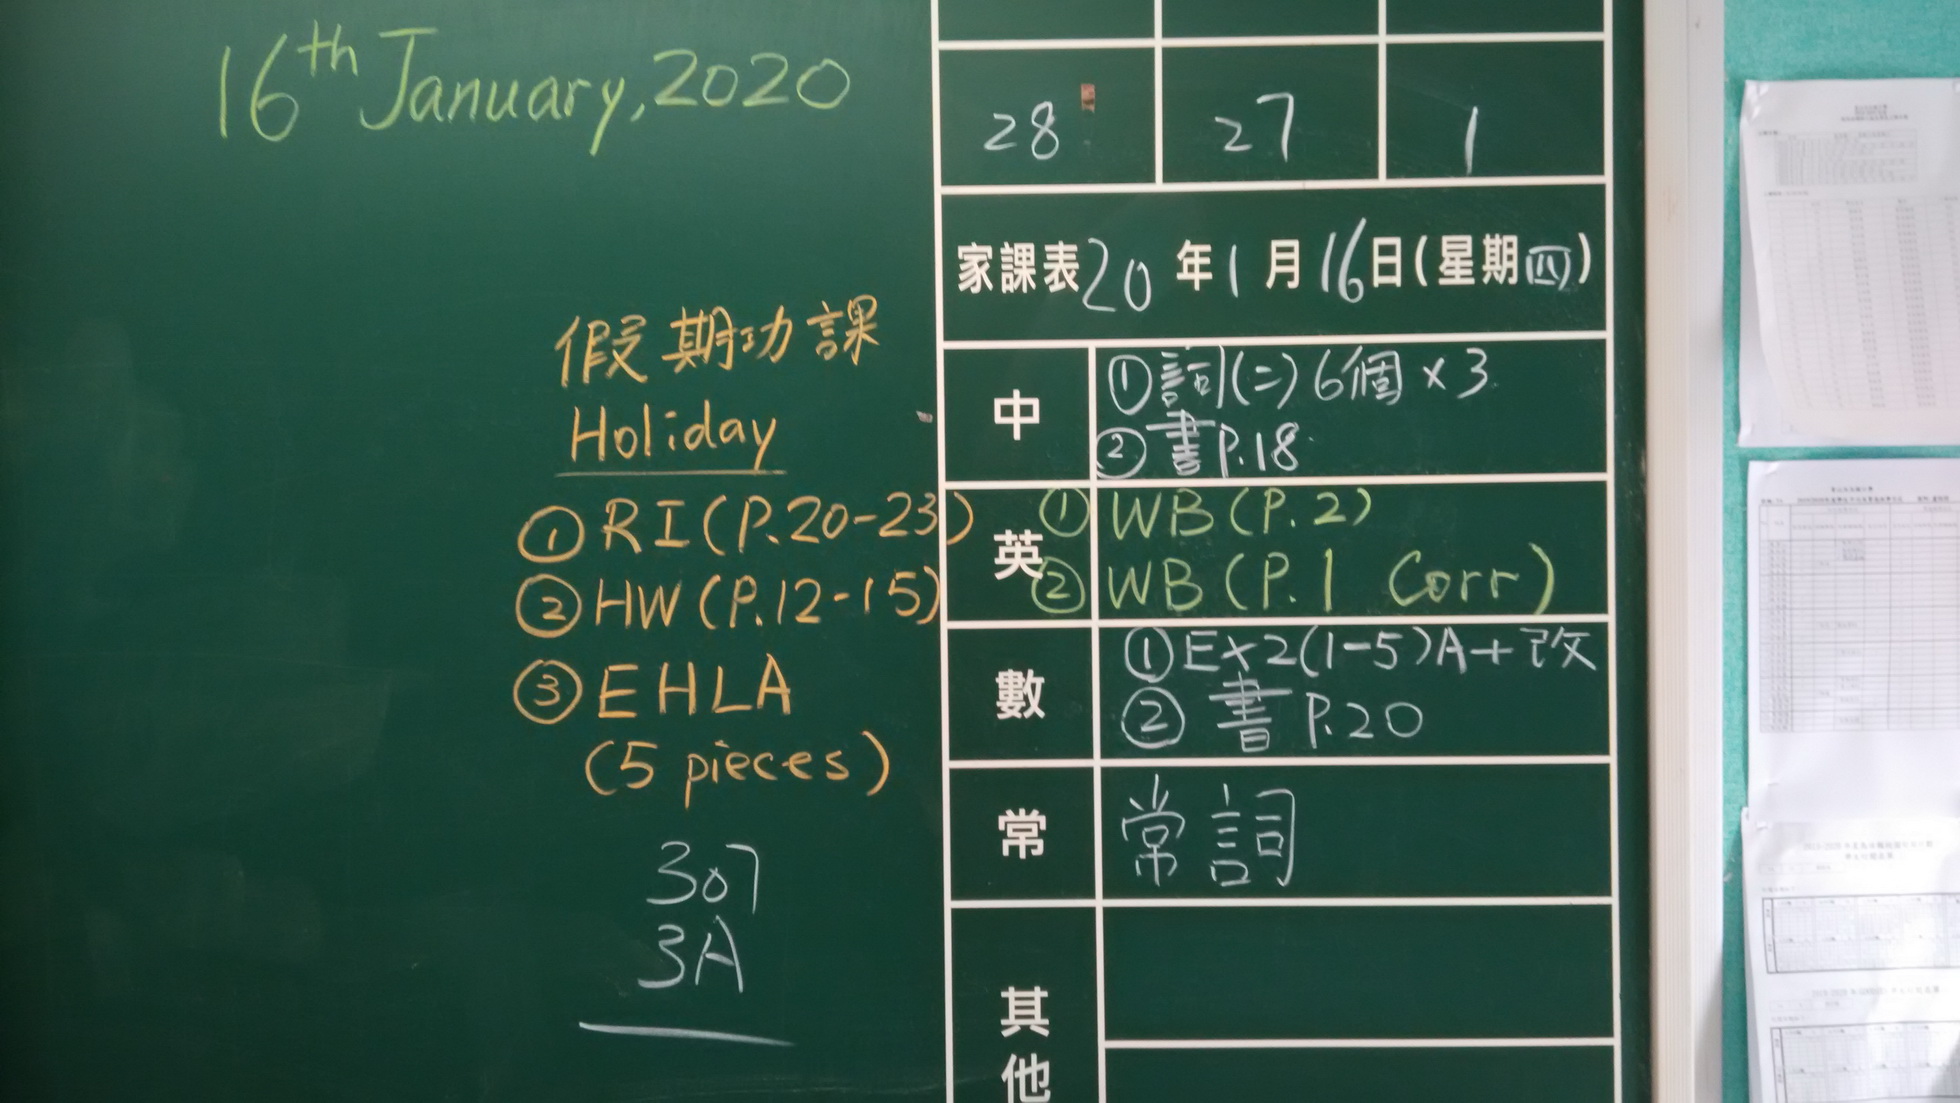 16th January, 2020
假期功課
Holiday
① RI (P.20-23)
② HW (P.12-15)
③ EHLA
(5 pieces)
307
3A
28 27 1
家課表 20年1月16日(星期四)
中
① 詞(二) 6個 x 3
② 書 P.18
英
① WB (P.2)
② WB (P.1 Corr)
數
① Ex2(1-5)A+改
② 書 P.20
常
常詞
其他